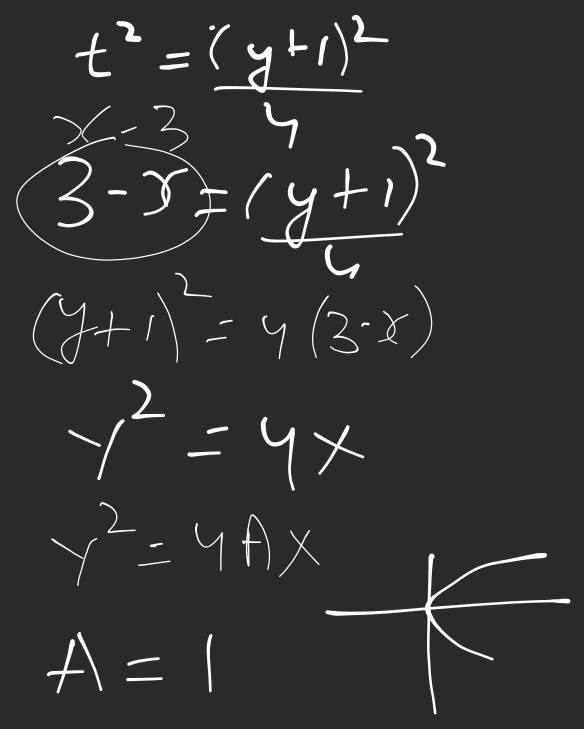 t² = (y+1)²/4
x-3
3-x = (y+1)²/4
(y+1)² = 4(3-x)
Y² = 4X
Y² = 4AX
A = 1